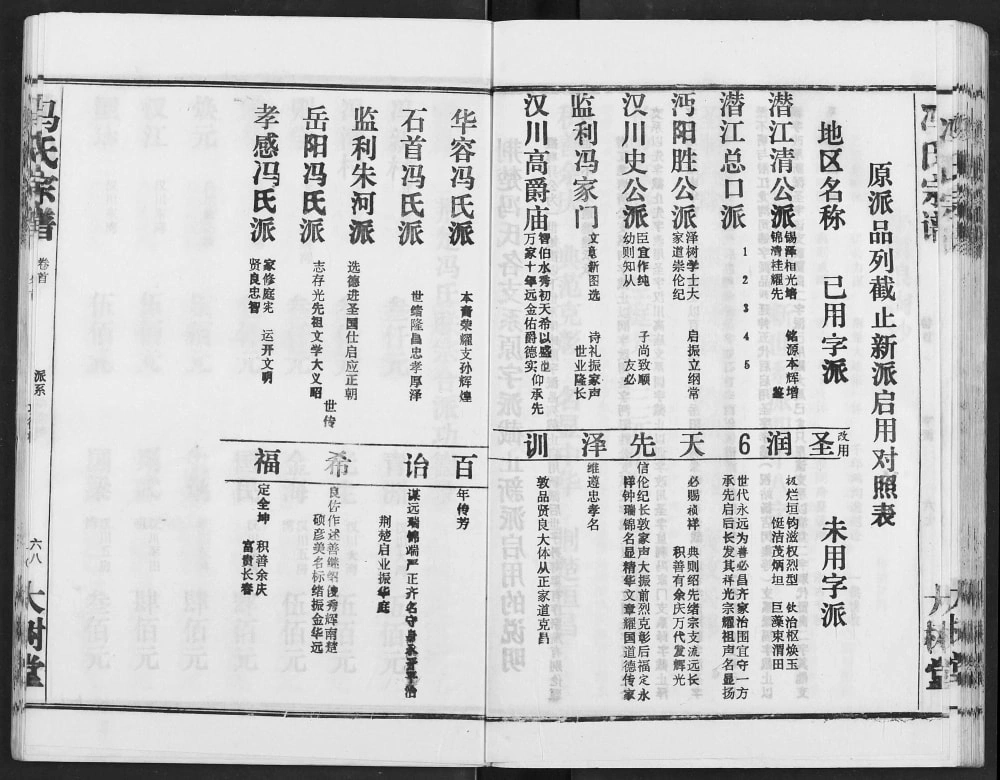 冯氏宗谱
大树堂
原派品列截止新派启用对照表
地区名称
已用字派
改用
未用字派
潜江清公派
锡泽相光增
锦清桂耀先
铭源本辉增
鉴
圣
烂垣钧滋权烈型
铤洁茂炳坦
钛治枢焕玉
巨藻束渭田
润
潜江总口派
1 2 3 4 5
6
世代永远为善必昌齐家治国宜守一方
承先启后长发其祥光宗耀祖声名显扬
沔阳胜公派
泽树学士大
家道崇伦纪
启振立纲常
天
必赐祯祥
典则绍先绪宗支流远长
积善有余庆万代发辉光
汉川史公派
臣宜作纯
幼则知从
子尚致顺
友必
先
信伦纪长敦家声大振前烈克彰后福定永
祥钟瑞锦名显精华文章耀国道德传家
监利冯家门
文章新图选
诗礼振家声
世业隆长
泽
维遵忠孝名
汉川高爵庙
智伯水秀初天希以盛
万家十年远金佑爵德实
仰承先
训
敦品贤良大体从正家道克昌
华容冯氏派
本青荣耀支孙辉煌
百
年传芳
石首冯氏派
世绪隆昌忠孝厚泽
诒
谋远瑞锦端严正齐名守身永晋平治
监利朱河派
选德进圣国仕启应正朝
荆楚启业振华庭
岳阳冯氏派
志存光先祖文学大义昭
世传
希
良佐作述善继纲俊秀辉南楚
硕彦美名标绪振金华远
孝感冯氏派
家修庭宪
贤良忠智
运开文明
福
定全坤
积善余庆
富贵长春
冯氏宗谱
卷首
派系
六八
大树堂